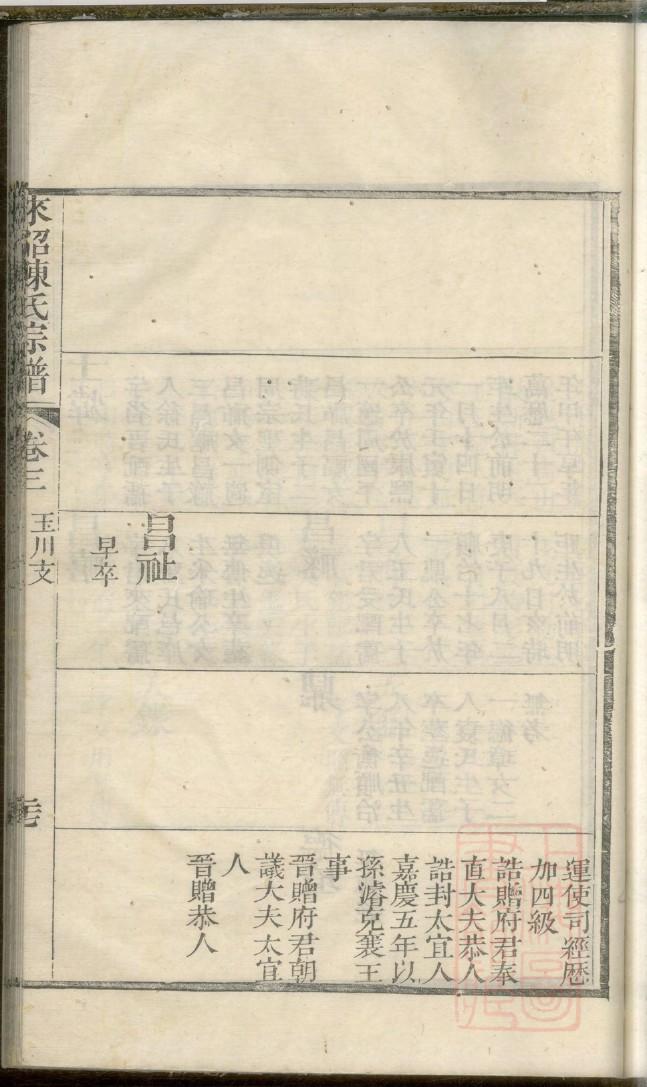 昌祉
早卒
運使司經歷
加四級
誥贈府君奉
直大夫恭人
誥封太宜人
嘉慶五年以
孫濬克襄王
事
晉贈府君朝
議大夫太宜
人
晉贈恭人
陳氏宗譜
卷三
玉川支